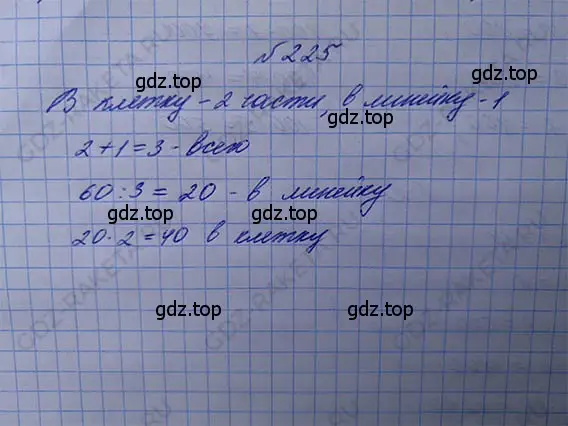 №225
В клетку - 2 части, в линейку - 1
2+1=3 - всего
60:3=20 - в линейку
20·2=40 в клетку
gdz.top
gdz.top
gdz.top
gdz.top
gdz.top
gdz.top
gdz.top